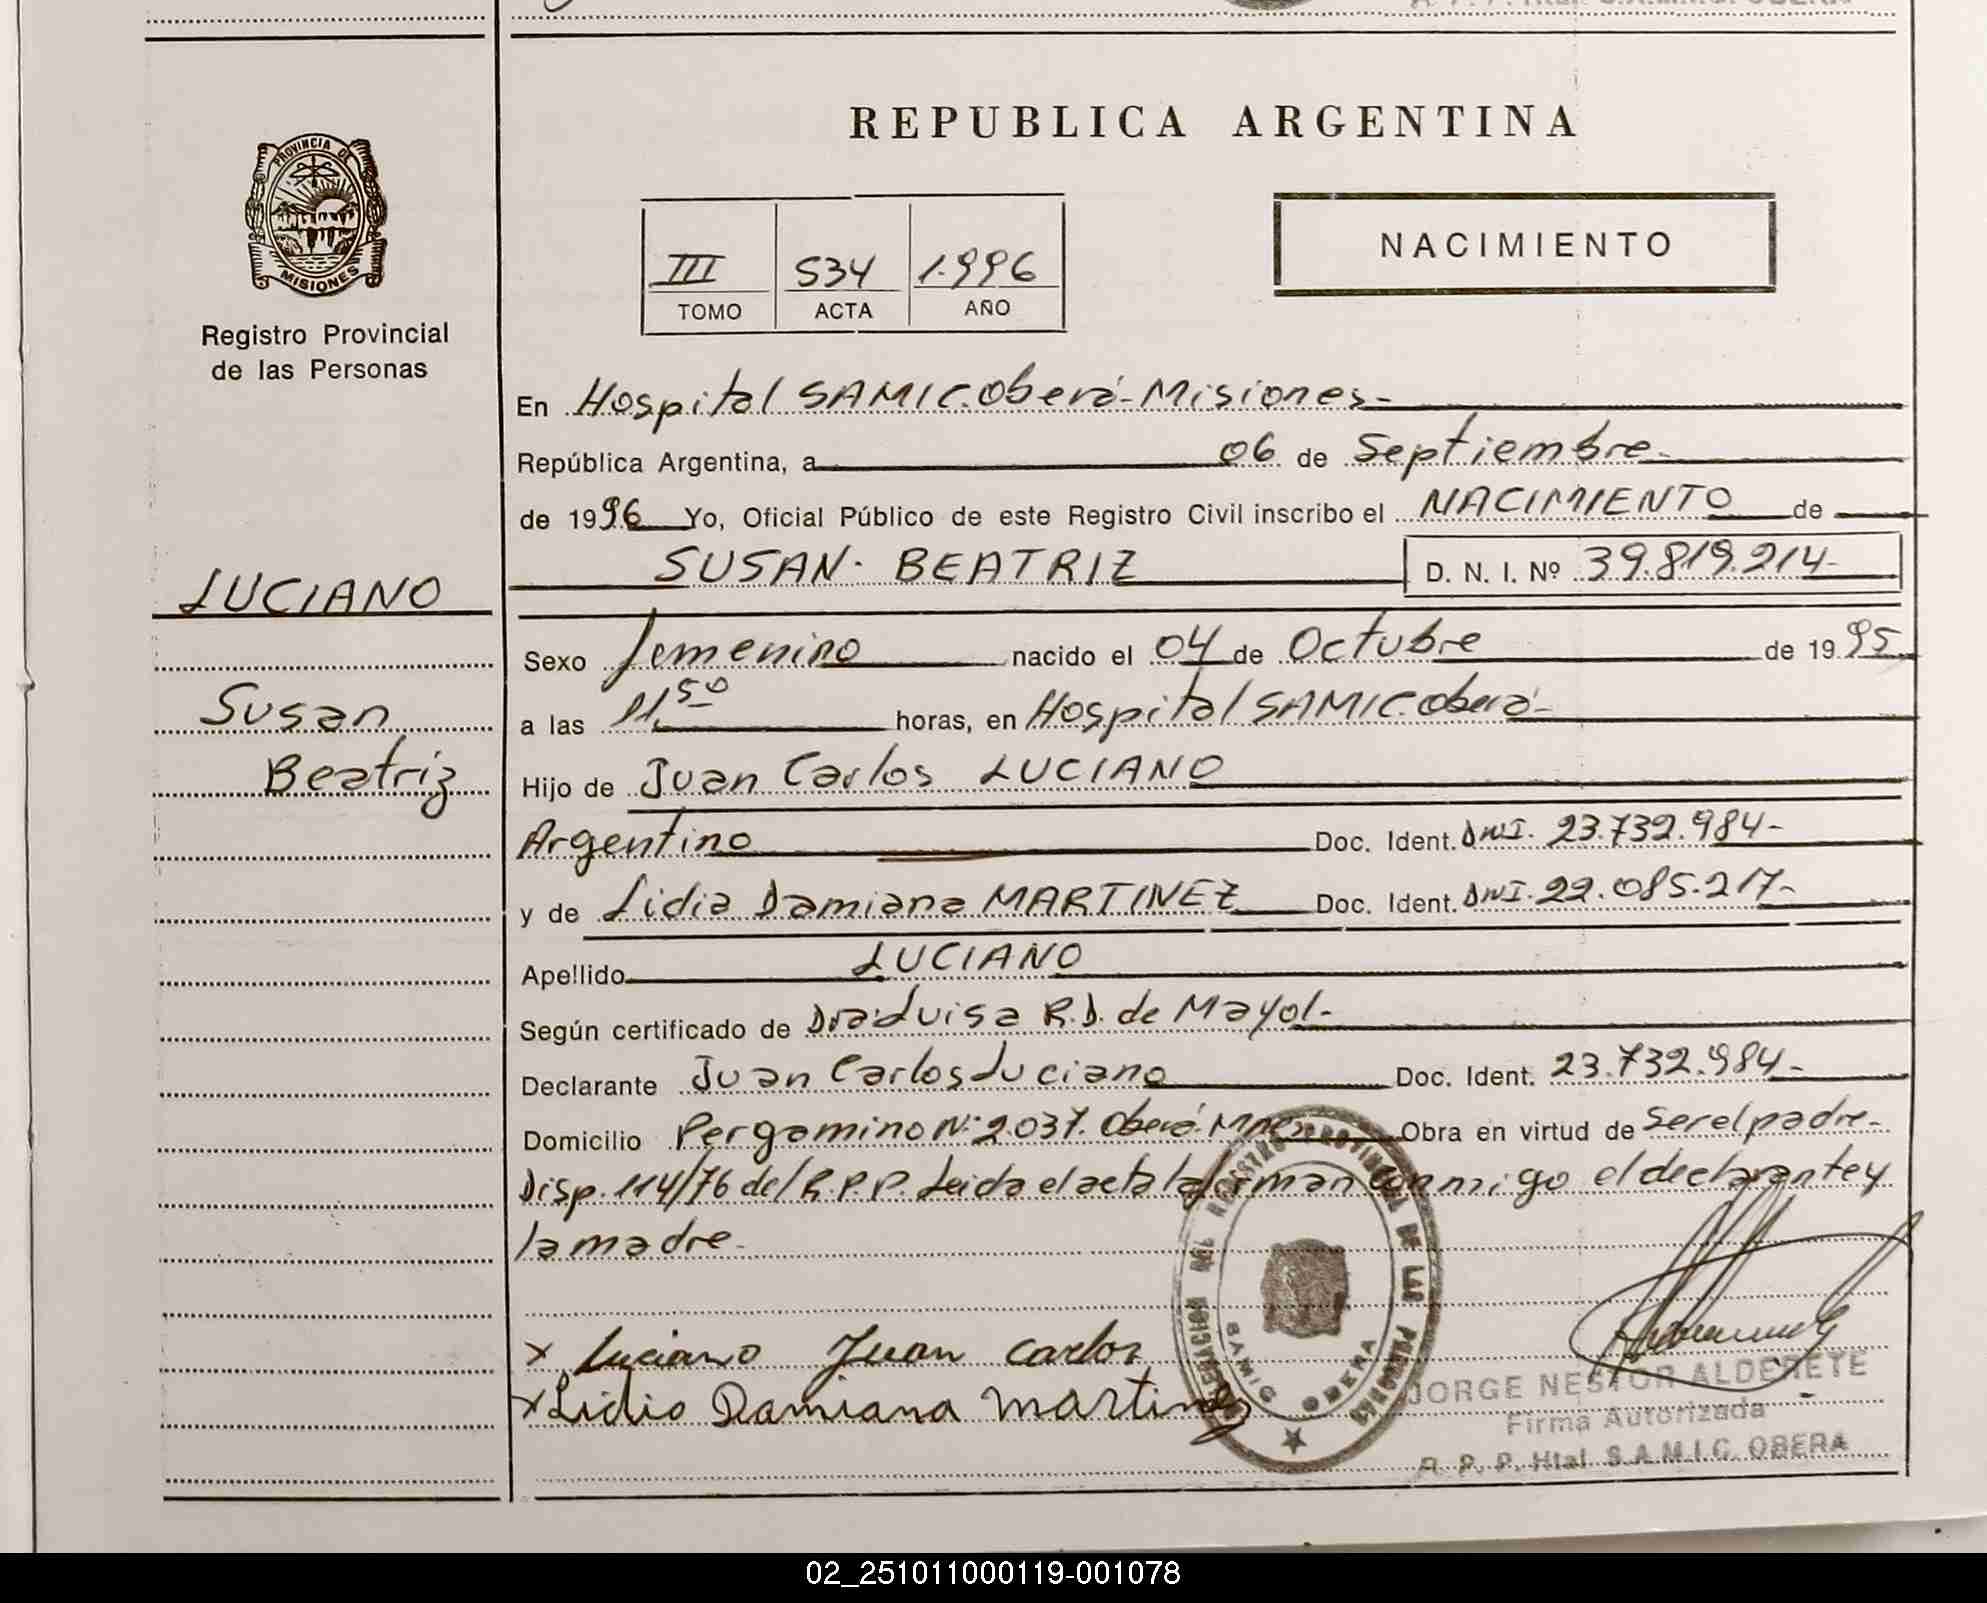 REPUBLICA ARGENTINA
PROVINCIA DE
MISIONES
Registro Provincial
de las Personas
III 534 1.996
TOMO ACTA AÑO
NACIMIENTO
En Hospital SAMIC. Oberá - Misiones -
República Argentina, a 06 de Septiembre -
de 1996 Yo, Oficial Público de este Registro Civil inscribo el NACIMIENTO de
SUSAN BEATRIZ D. N. I. Nº 39.819.214-
LUCIANO
Susan
Beatriz
Sexo femenino nacido el 04 de Octubre de 1995
a las 11,50 horas, en Hospital SAMIC. Oberá -
Hijo de Juan Carlos LUCIANO
Argentino Doc. Ident. DNI. 23.732.984-
y de Lidia Damiana MARTINEZ Doc. Ident. DNI. 22.085.217-
Apellido LUCIANO
Según certificado de Dra. Luisa R.D. de Mayol -
Declarante Juan Carlos Luciano Doc. Ident. 23.732.984-
Domicilio Pergamino Nº 2.037. Oberá Mnes Obra en virtud de Ser el padre -
Disp. 114/76 del R.P.P. Leida el acta la firman conmigo el declarante y
la madre -
x Luciano Juan Carlos
x Lidia Damiana Martinez
REGISTRO PROVINCIAL DE LAS PERSONAS
SAMIC OBERA
JORGE NESTOR ALDERETE
Firma Autorizada
R. P. P. Htal. S.A.M.I.C. OBERA
02_251011000119-001078